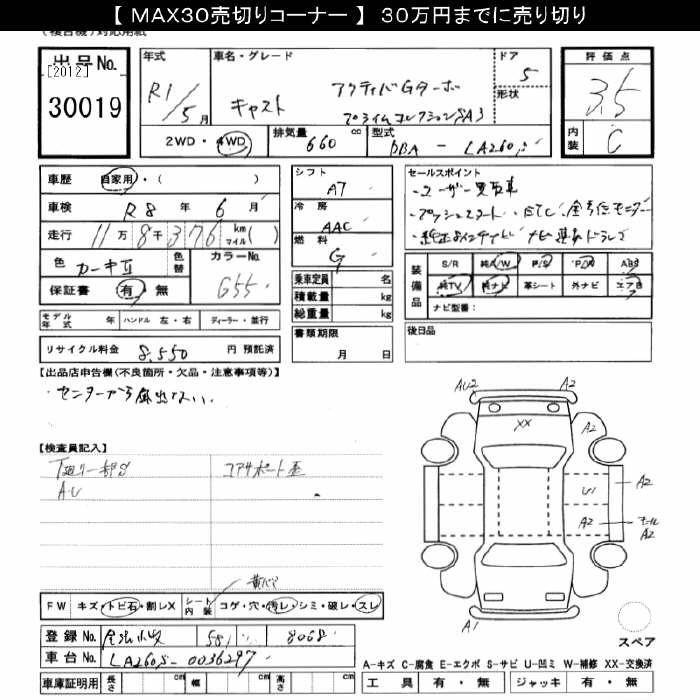 【 MAX30売切りコーナー 】 30万円までに売り切り
出品No.
[2012]
30019
年式
R1/5月
車名・グレード
キャスト
アクティバGターボ
プライムコレクションSA3
ドア
5
形状
評価点
3.5
内装
C
2WD・4WD
排気量
660 cc
型式
DBA - LA260S
車歴 自家用・( )
車検 R8年 6月
走行 11万8千376 km マイル( )
色 カーキII
色替
カラーNo.
G55
保証書 有・無
モデル年式 年 ハンドル 左・右 ディーラー・並行
リサイクル料金 8,550 円 預託済
シフト
AT
冷房
AAC
燃料
G
乗車定員 名
積載量 kg
総重量 kg
書類期限
月 日
セールスポイント
・ユーザー買取車
・プッシュスタート
装備品
S/R 純A/W P/S P/W ABS
純TV 純ナビ 革シート 外ナビ エアB
ナビ型番：
後日品
【出品店申告欄(不良箇所・欠品・注意事項等)】
【検査員記入】
下廻り一部S
A.U
コアサポート歪
FW キズ・トビ石・割レX
シート内装 コゲ・穴・汚レ・シミ・破レ・スレ
登録No. 581 8068
車台No. LA260S-0036297
車庫証明用 長さ cm 幅 cm 高さ cm
AU2
A2
XX
A2
U1
A2
A2
A2
A1
スペア
A-キズ C-腐食 E-エクボ S-サビ U-凹ミ W-補修 XX-交換済
工具 有・無 ジャッキ 有・無